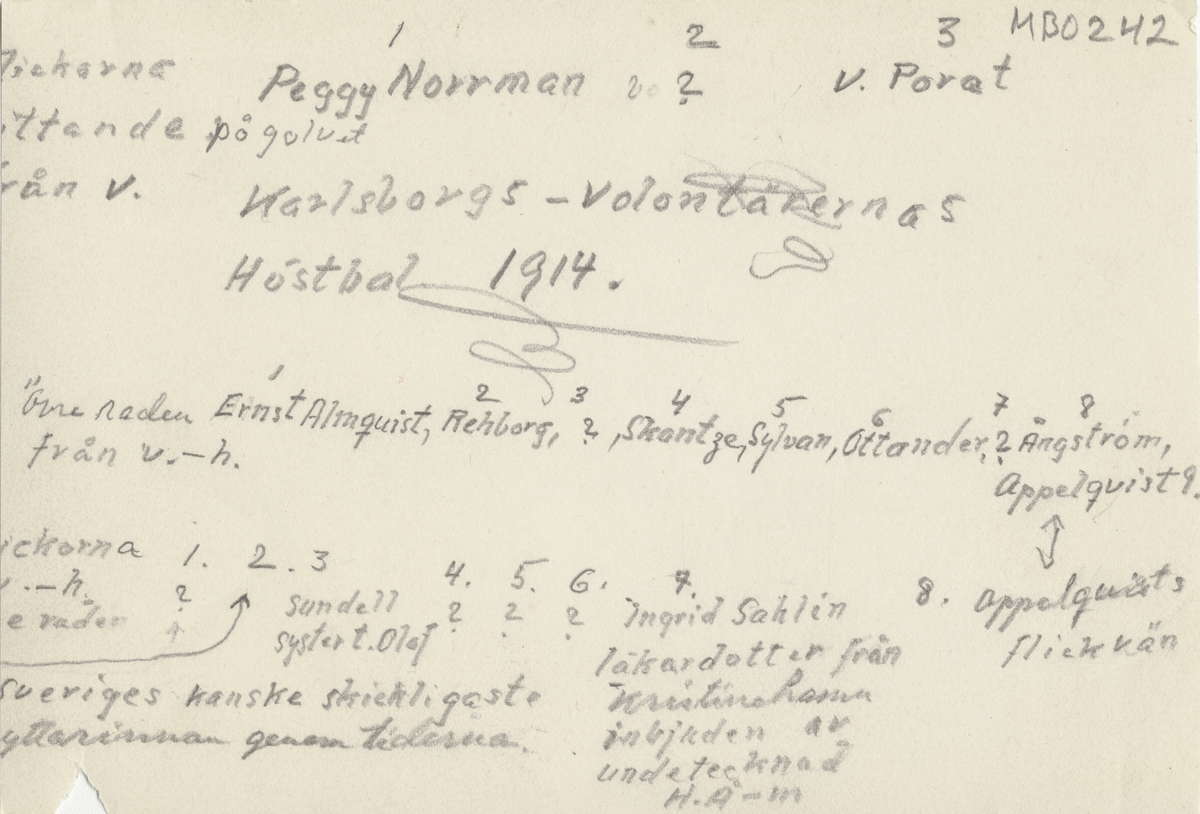 1 2 3 MBO242
Flickorna Peggy Norrman ? v. Porat
sittande på golvet
från v.
Karlsborgs - Volontärernas
Höstbal 1914.
1 2 3 4 5 6 7 8
Övre raden Ernst Almquist, Rehborg, ?, Skantze, Sylvan, Ottander, ? Ångström,
från v.-h.
Appelquist 9.
ickorna 1. 2. 3 4. 5. 6. 7. 8. Appelquists
v.-h. ? Sundell ? ? ? Ingrid Sahlin
e raden syster t. Olof flickvän
läkardotter från
Sveriges kanske skickligaste Kristinehamn
yttarinnan genom tiderna. inbjuden av
undetecknad
H.Å-m